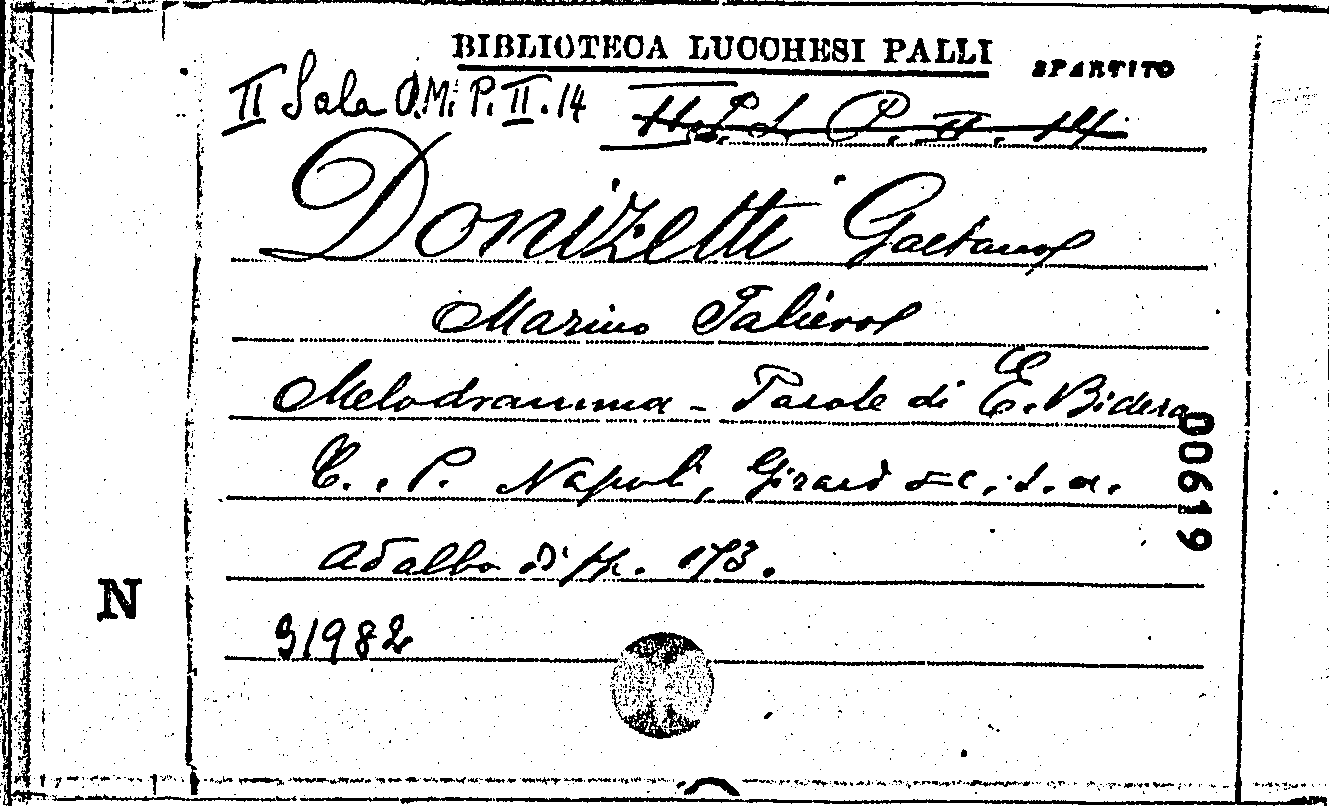 BIBLIOTECA LUCCHESI PALLI
SPARTITO
II Sala O.M. P. II. 14
P. II. 14
Donizetti Gaetano
Marino Faliero
Melodramma - Parole di E. Bidera
C. . P. Napoli, Girard & C. s. a.
ad albo di pp. 173.
00619
N
31982